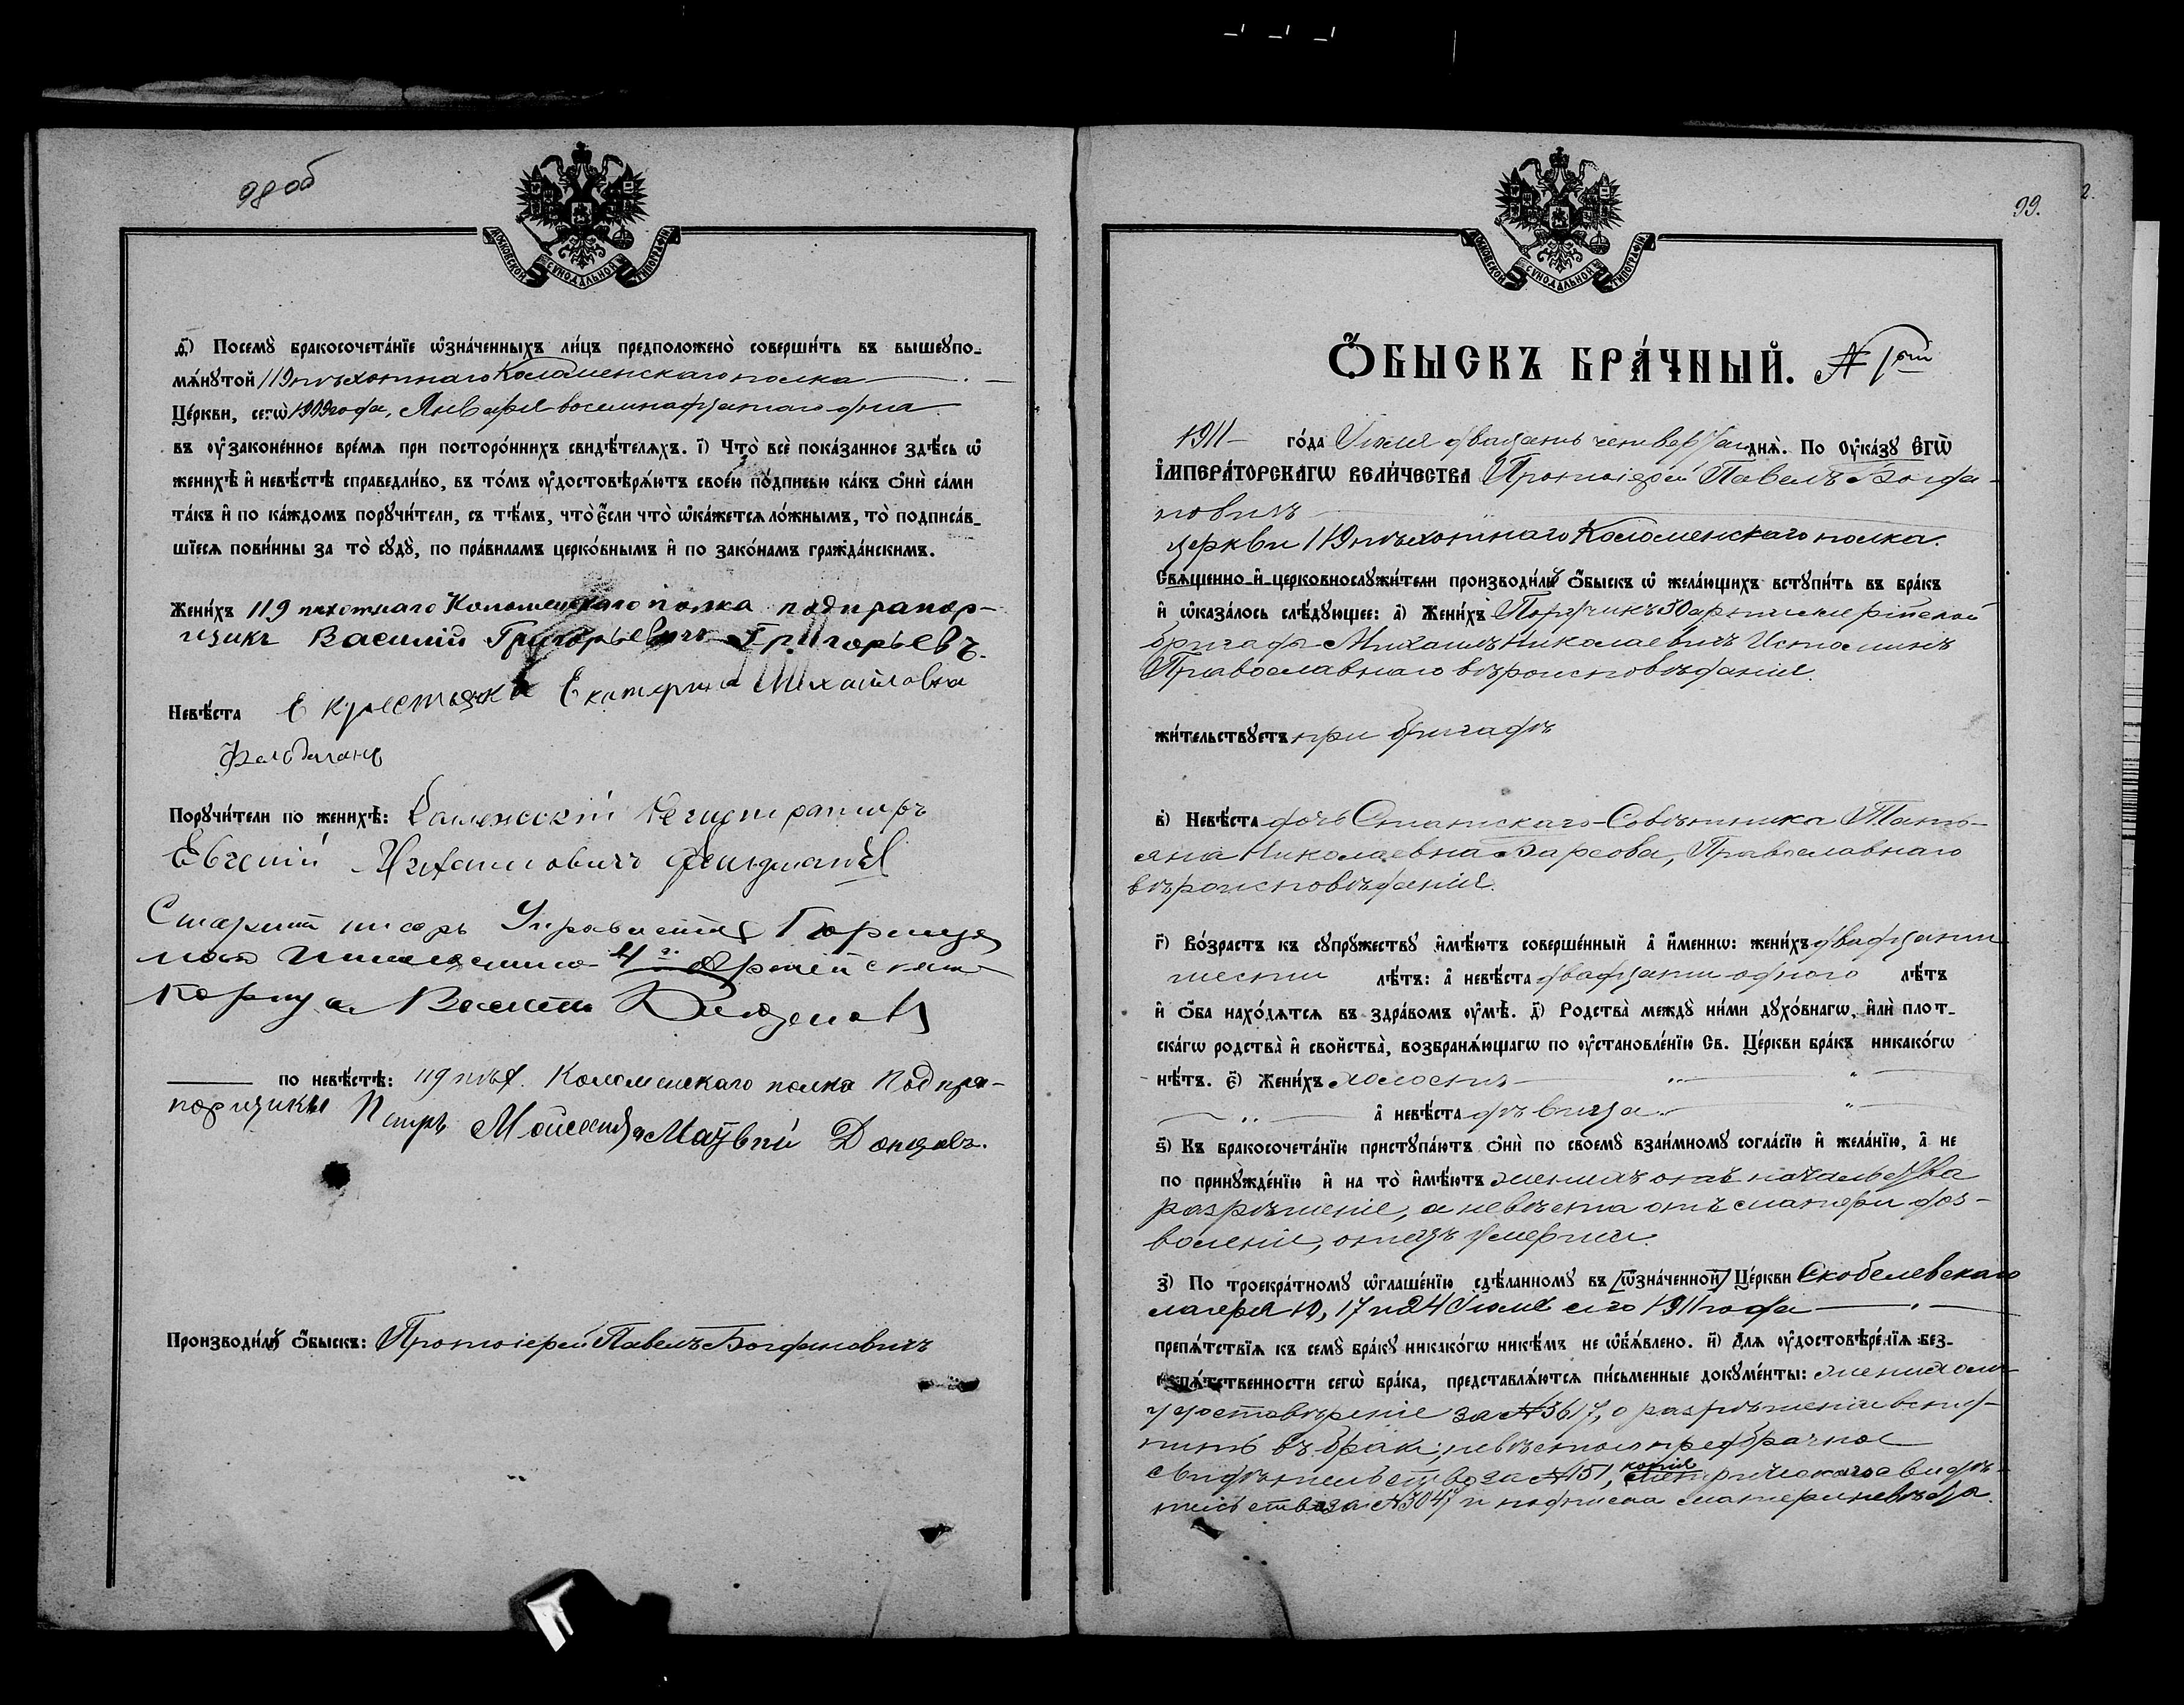 98 об
МОСКОВСКОЙ СѴНОДАЛЬНОЙ ТИПОГРАФІИ.
д҃) Посемꙋ̀ бракосочета́нїе ѡ҆зна́ченныхъ ли́цъ предположено̀ соверши́ть въ вышеꙋпо-
мѧ́нꙋтой 119 пѣхотнаго Коломенскаго полка
Це́ркви, сегѡ̀ 1909 года, Января восемнадцатаго дня
въ ᲂу҆зако́ненное вре́мѧ при посторо́ннихъ свидѣ́телѧхъ. і҃) Что̀ всѐ пока́занное здѣ́сь ѡ҆
женихѣ̀ и҆ невѣ́стѣ справедли́во, въ то́мъ ᲂу҆достовѣрѧ́ютъ свое́ю по́дписью ка́къ ѻ҆нѝ са́ми
та́къ и҆ по ка́ждомъ порꙋчи́тели, съ тѣ́мъ, что̀ є҆́сли что̀ ѡ҆ка́жетсѧ ло́жнымъ, то̀ подписа́в-
шїесѧ пови́нны за то̀ сꙋдꙋ̀, по пра́виламъ церко́внымъ и҆ по зако́намъ гражда́нскимъ.
Жени́хъ 119 пѣхотнаго Коломенскаго полка подпрапор-
щикъ Василій Григорьевичъ Григорьевъ.
Невѣ́ста крестьянка Екатерина Михайловна
Фельдманъ
Порꙋчи́тели по женихѣ̀: Коллежскій Регистраторъ
Евгеній Михайловичъ Фельдманъ
Старшій писарь Управленія
4го Армейскаго
Корпуса
по невѣ́стѣ: 119 пѣх. Коломенскаго полка Подпра-
порщики Петръ Моисеевъ и Матвѣй Донцовъ.
Производи́лъ ѻ҆́быскъ: Протоіерей Павелъ Богдановичъ
99.
МОСКОВСКОЙ СѴНОДАЛЬНОЙ ТИПОГРАФІИ.
Ѻ҆́БЫСКЪ БРА́ЧНЫЙ. №1ый
1911 го́да Іюля двадцать четвертаго днѧ̀. По ᲂу҆ка́зꙋ Є҆ГѠ̀
І҆МПЕРА́ТОРСКАГѠ ВЕЛИ́ЧЕСТВА Протоіерей Павелъ Богда-
новичъ
церкви 119 пѣхотнаго Коломенскаго полка.
Свѧще́нно-и҆-церковнослꙋжи́тели производи́лъ ѻ҆́быскъ ѡ҆ жела́ющихъ встꙋпи́ть въ бра́къ
и҆ ѡ҆каза́лось слѣ́дꙋющее: а҃) Жени́хъ Поручикъ 30 артиллерійской
бригады Михаилъ Николаевичъ Истоминъ
Православнаго вѣроисповѣданія.
жи́тельствꙋетъ при бригадѣ
в҃) Невѣ́ста дочь Статскаго Совѣтника Тать-
яна Николаевна Барсова, Православнаго
вѣроисповѣданія.
г҃) Во́зрастъ къ сꙋпрꙋ́жествꙋ и҆мѣ́ютъ соверше́нный а҆ и҆́меннѡ: жени́хъ двадцати
шести лѣ́тъ: а҆ невѣ́ста двадцати одного лѣ́тъ
и҆ ѻ҆́ба нахо́дѧтсѧ въ здра́вомъ ᲂу҆мѣ̀. д҃) Родства̀ междꙋ̀ ни́ми дꙋхо́внагѡ, и҆лѝ плот-
ска́гѡ родства̀ и҆ свойства̀, возбранѧ́ющагѡ по ᲂу҆становле́нїю Св. Це́ркви бра́къ никако́гѡ
нѣ́тъ. є҃) Жени́хъ холостъ
а҆ невѣ́ста дѣвица
ѕ҃) Къ бракосочета́нїю пристꙋпа́ютъ ѻ҆нѝ по своемꙋ̀ взаи́мномꙋ согла́сїю и҆ жела́нїю, а҆ не
по принꙋжде́нїю и҆ на то̀ и҆мѣ́ютъ женихъ отъ начальства
разрѣшеніе, а невѣста отъ матери доз-
воленіе, отецъ умерши.
з҃) По троекра́тномꙋ ѡ҆глаше́нїю сдѣ́ланномꙋ въ [ѡ҆зна́ченной] Це́ркви Скобелевскаго
лагеря 10, 17 и 24 Іюля сего 1911 года
препѧ́тствїѧ къ семꙋ̀ бра́кꙋ никако́гѡ никѣ́мъ не ѡ҆б̾ѧ́влено. и҃) Длѧ ᲂу҆достовѣре́нїѧ без-
препѧ́тственности сегѡ̀ бра́ка, представлѧ́ютсѧ пи́сьменные докꙋме́нты: женихомъ
удостовѣреніе за №3617, о разрѣшеніи вступ-
пить въ бракъ; невѣстою предбрачное
свидѣтельство за №151, копія метрическаго свидѣ-
тельства за №3047 и подписка матери невѣсты.